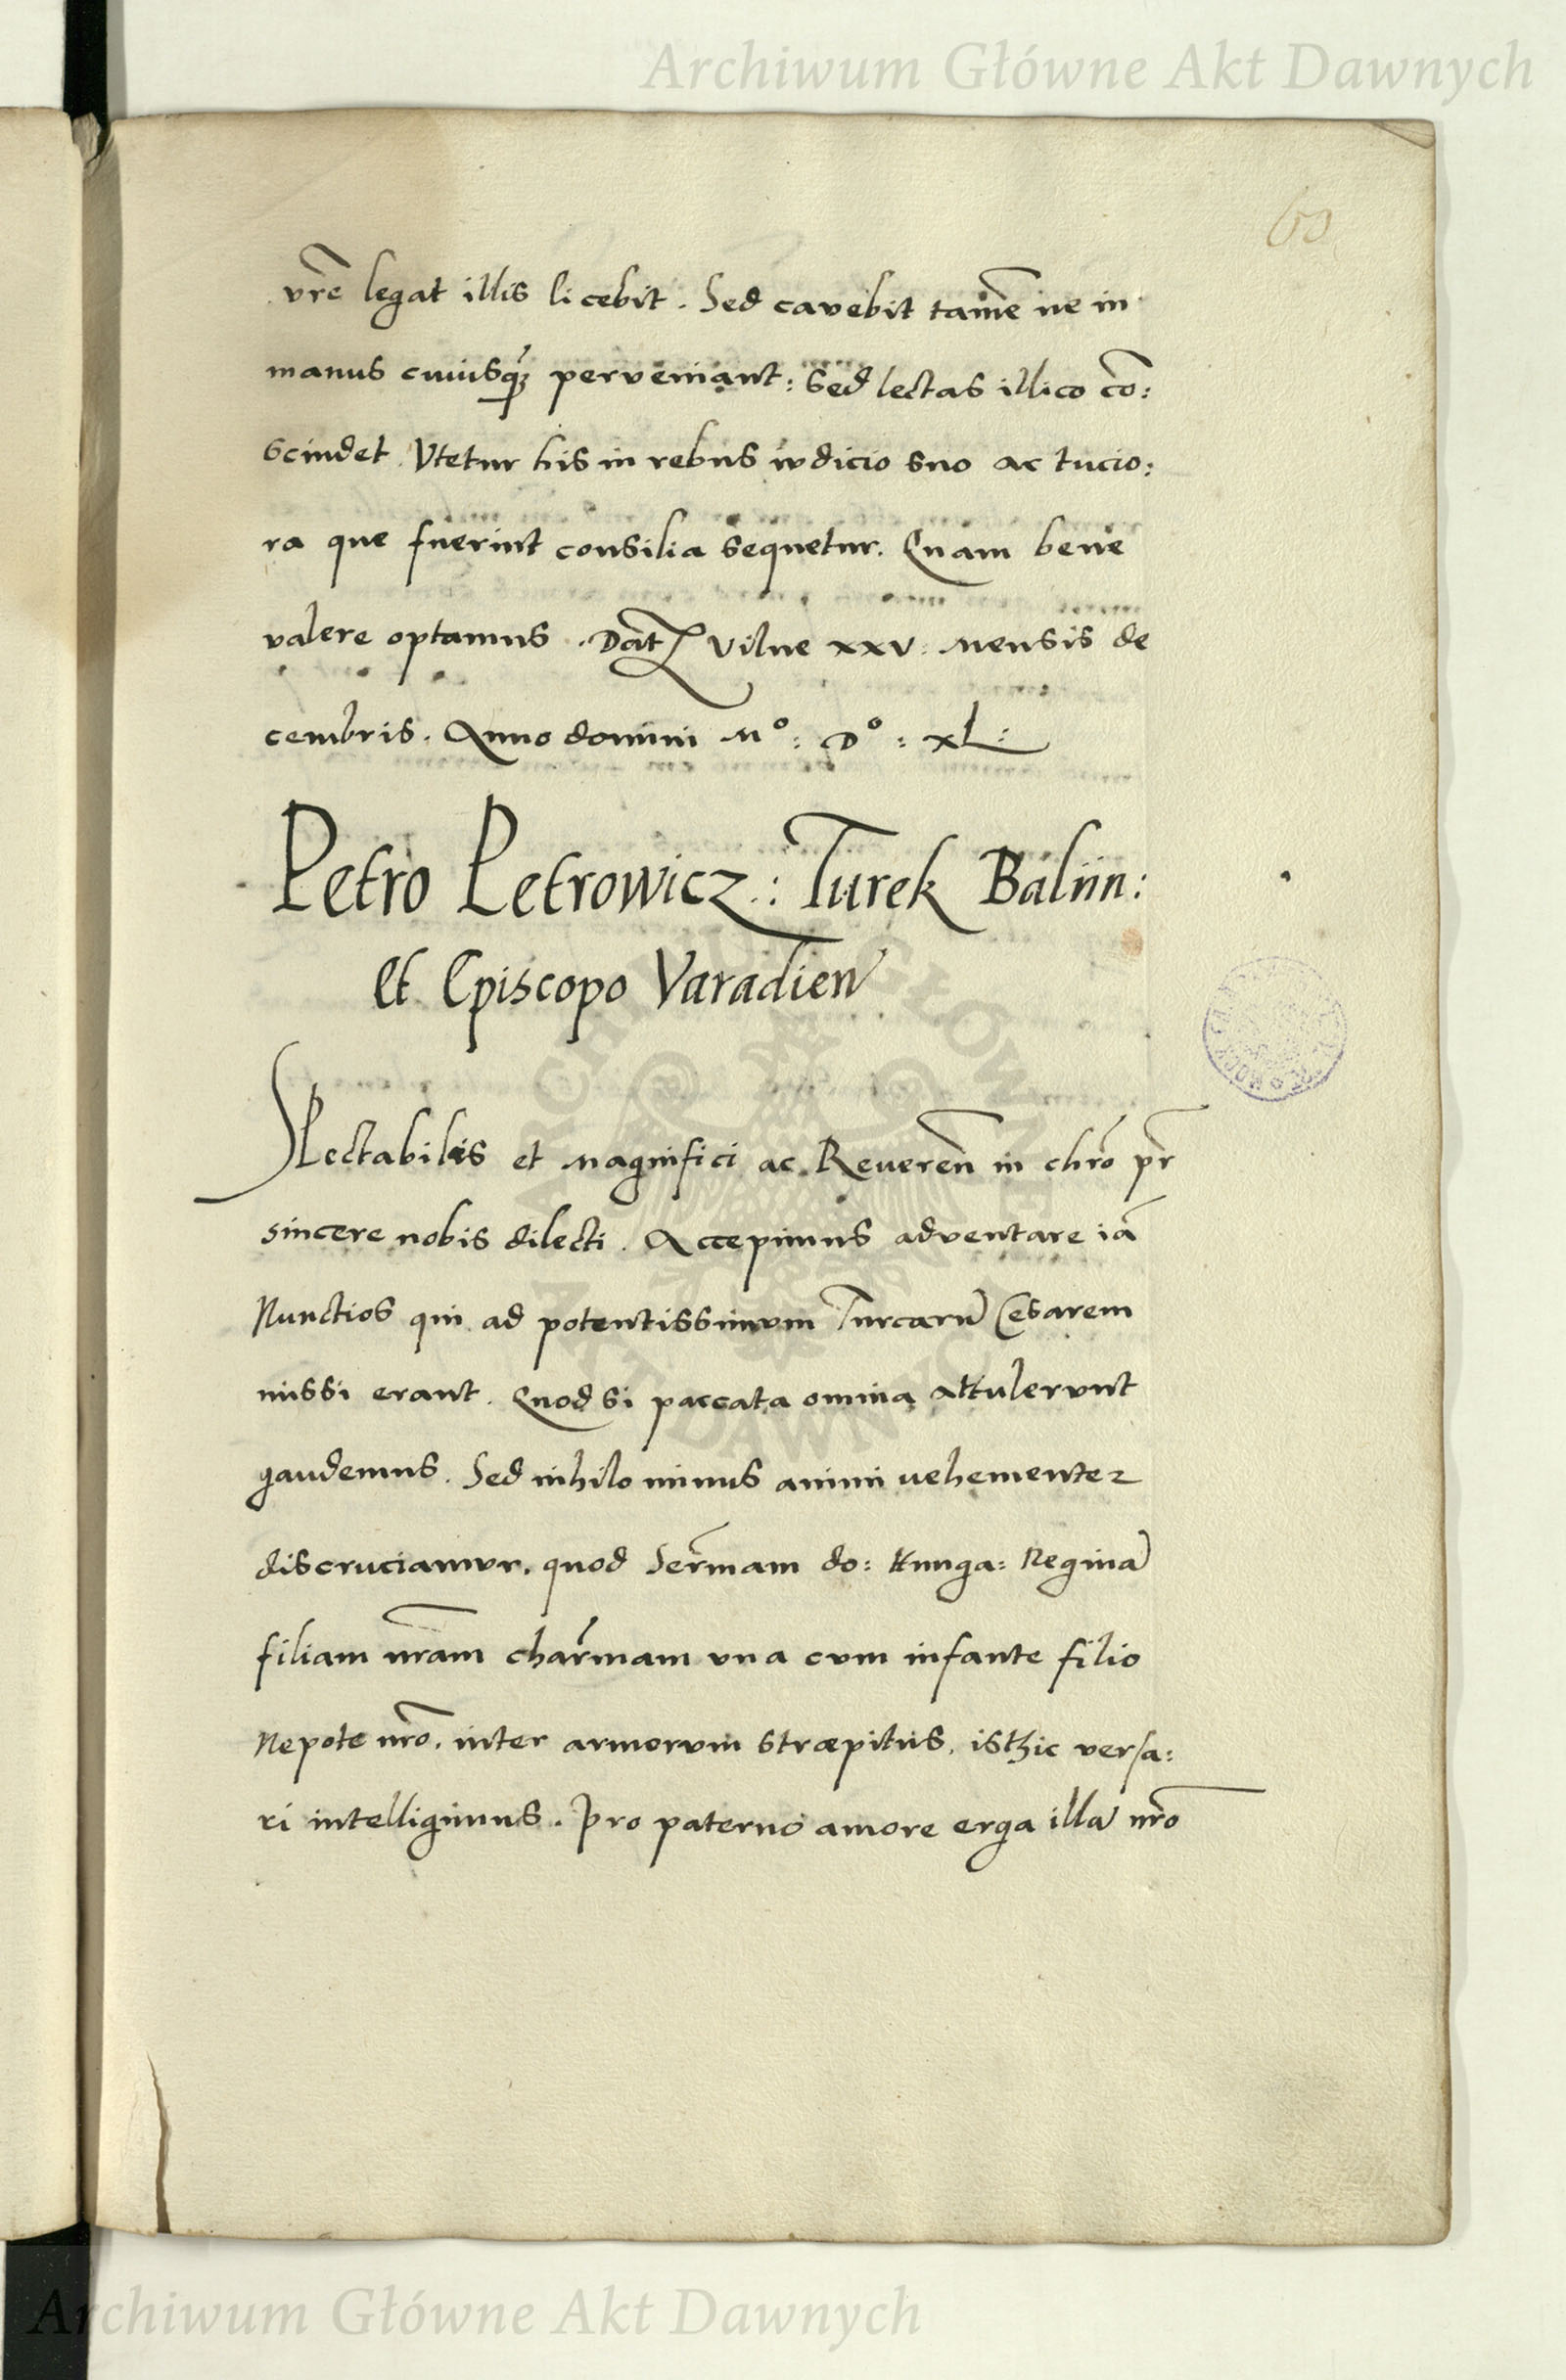 Archiwum Główne Akt Dawnych
60
vr̃e legat illis licebit. Sed cavebit tamẽ ne in
manus cuiusq̃ perveniant: Sed lectas illico cõ:
scindet. Vtetur his in rebus iudicio suo ac tucio:
ra que fuerint consilia sequetur. Quam bene
valere optamus. Dat Vilne xxv. Mensis de
cembris. Anno domini Mº: Dº: xL:
Petro Petrowicz: Turek Baliin:
Et Episcopo Varadien
Spectabiles et Magnifici ac Reveren̄ in chro pr̄
sincere nobis dilecti. Accepimus adventare iã
Nunctios qui ad potentissimum Turcarũ Cesarem
missi erant. Quod si paccata omnia attulerunt
gaudemus. Sed nihilo minus animi vehementer
discruciamur, quod Ser̄mam do: Hunga: Reginã
filiam nr̄am char̄mam una cum infante filio
Nepote nr̄o, inter armorum stræpitus, isthic versa:
ri intelligimus. Pro paterno amore erga illã nr̄o
ARCHIWUM GŁÓWNE AKT DAWNYCH
Archiwum Główne Akt Dawnych